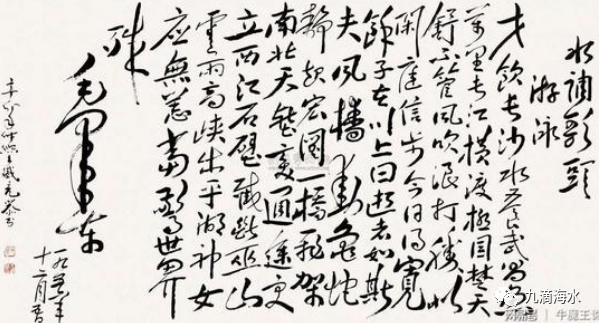 水調歌頭
游泳
才飲長沙水又食武昌魚
萬里長江橫渡極目楚天
舒不管風吹浪打勝似
閑庭信步今日得寬
餘子在川上曰逝者如斯
夫風檣動龜蛇
靜起宏圖一橋飛架
南北天塹變通途更
立西江石壁截斷巫山
雲雨高峽出平湖神女
應無恙當驚世界
殊
毛澤東
一九五六年
十二月
九滴海水
牛魔王